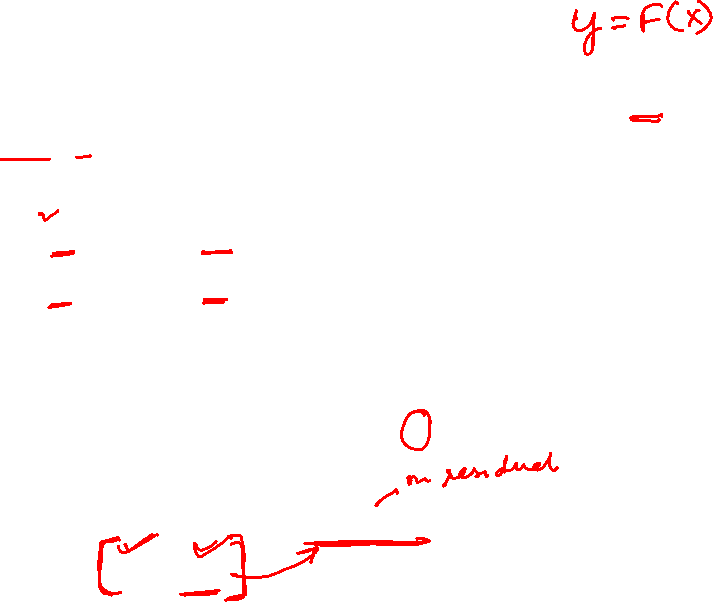 y = F(x)
0
residual